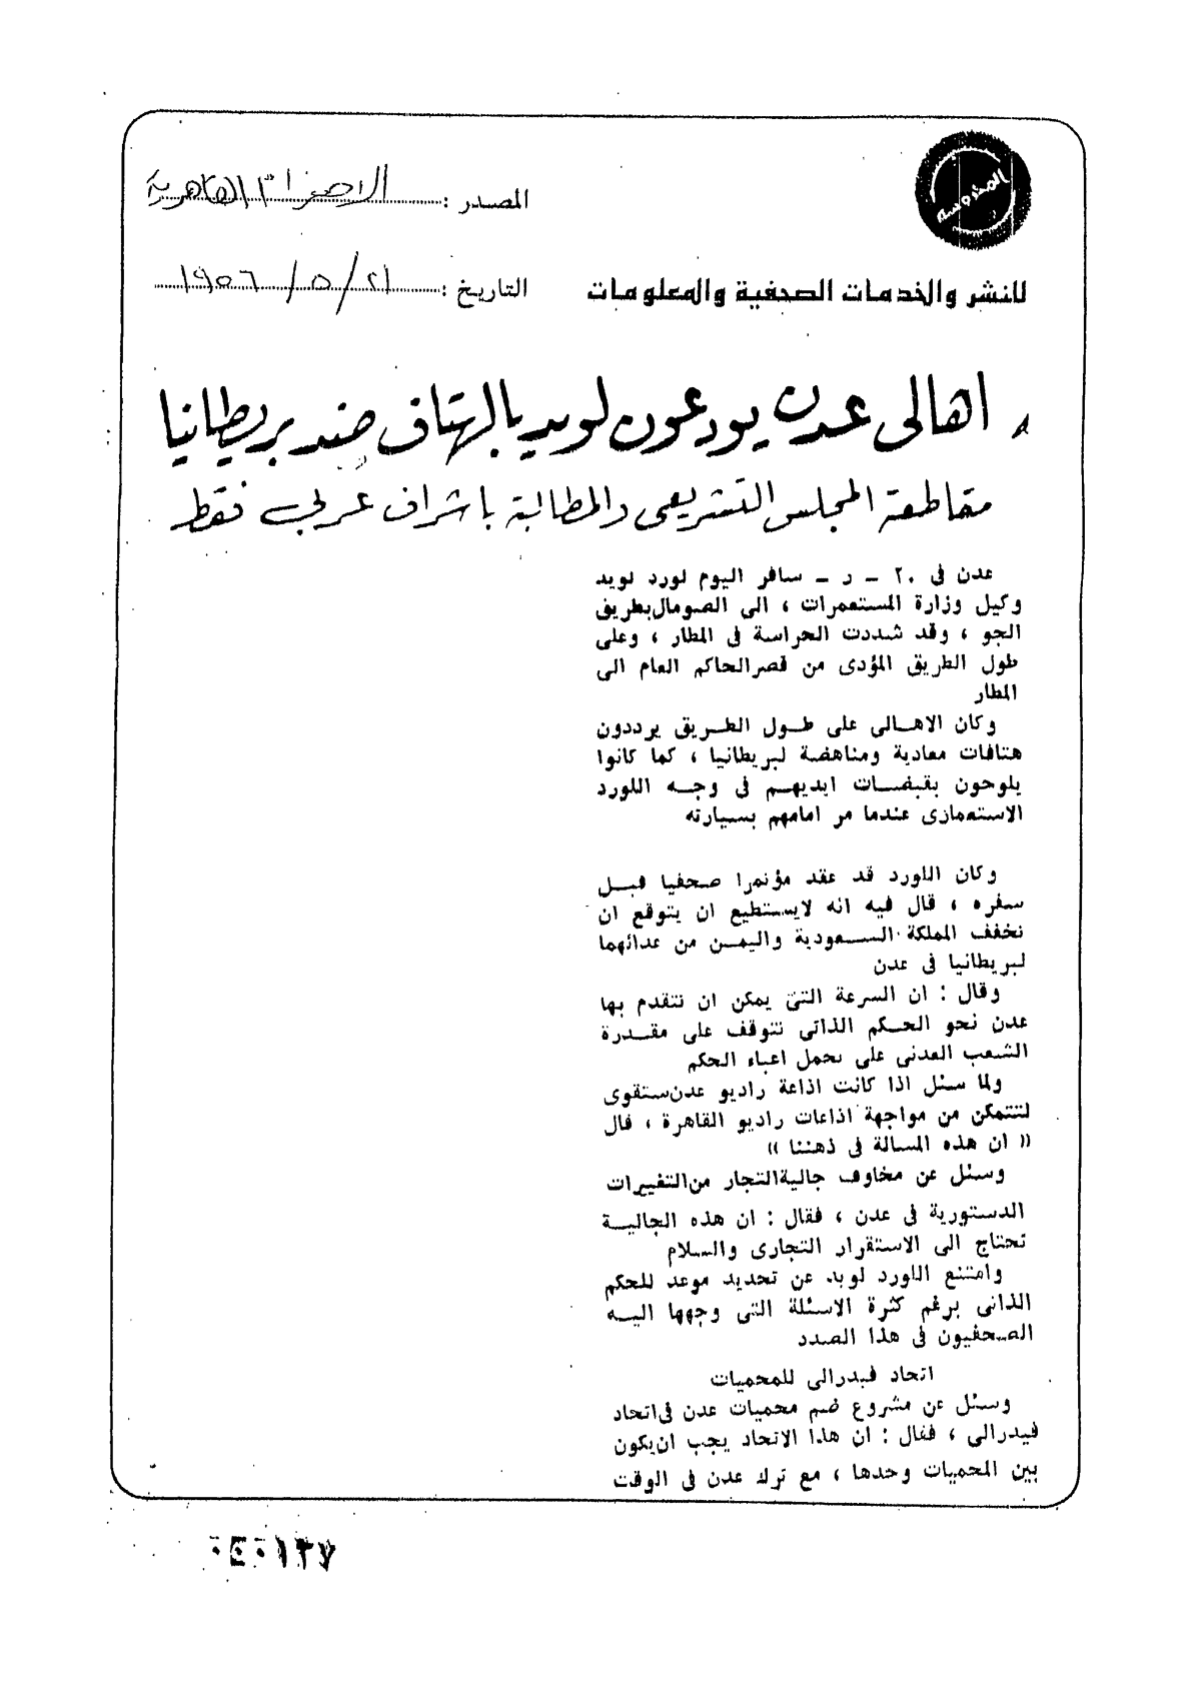 المحروسة
المصدر : الاهرام القاهرية
للنشر والخدمات الصحفية والمعلومات
التاريخ : ٢١ / ٥ / ١٩٥٦
اهالى عدن يودعون لويد بالهتاف ضد بريطانيا
مقاطعة المجلس التشريعى والمطالبة باشراف عربى فقط
عدن فى ٢٠ - ر - سافر اليوم لورد لويد
وكيل وزارة المستعمرات ، الى الصومال بطريق
الجو ، وقد شددت الحراسة فى المطار ، وعلى
طول الطريق المؤدى من قصر الحاكم العام الى
المطار
وكان الاهالى على طول الطريق يرددون
هتافات معادية ومناهضة لبريطانيا ، كما كانوا
يلوحون بقبضات ايديهم فى وجه اللورد
الاستعمارى عندما مر امامهم بسيارته
وكان اللورد قد عقد مؤتمرا صحفيا قبل
سفره ، قال فيه انه لايستطيع ان يتوقع ان
تخفف المملكة السعودية واليمن من عدائهما
لبريطانيا فى عدن
وقال : ان السرعة التى يمكن ان تتقدم بها
عدن نحو الحكم الذاتى تتوقف على مقدرة
الشعب العدنى على تحمل اعباء الحكم
ولما سئل اذا كانت اذاعة راديو عدن ستقوى
لتتمكن من مواجهة اذاعات راديو القاهرة ، قال
« ان هذه المسالة فى ذهننا »
وسئل عن مخاوف جالية التجار من التغييرات
الدستورية فى عدن ، فقال : ان هذه الجالية
تحتاج الى الاستقرار التجارى والسلام
وامتنع اللورد لويد عن تحديد موعد للحكم
الذاتى برغم كثرة الاسئلة التى وجهها اليه
الصحفيون فى هذا الصدد
اتحاد فيدرالى للمحميات
وسئل عن مشروع ضم محميات عدن فى اتحاد
فيدرالى ، فقال : ان هذا الاتحاد يجب ان يكون
بين المحميات وحدها ، مع ترك عدن فى الوقت